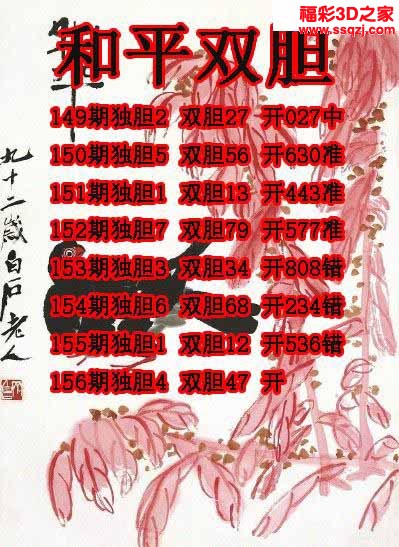 福彩3D之家
www.ssqzj.com
和平双胆
149期独胆2 双胆27 开027中
150期独胆5 双胆56 开630准
151期独胆1 双胆13 开443准
152期独胆7 双胆79 开577准
153期独胆3 双胆34 开808错
154期独胆6 双胆68 开234错
155期独胆1 双胆12 开536错
156期独胆4 双胆47 开
九十二歲白石老人